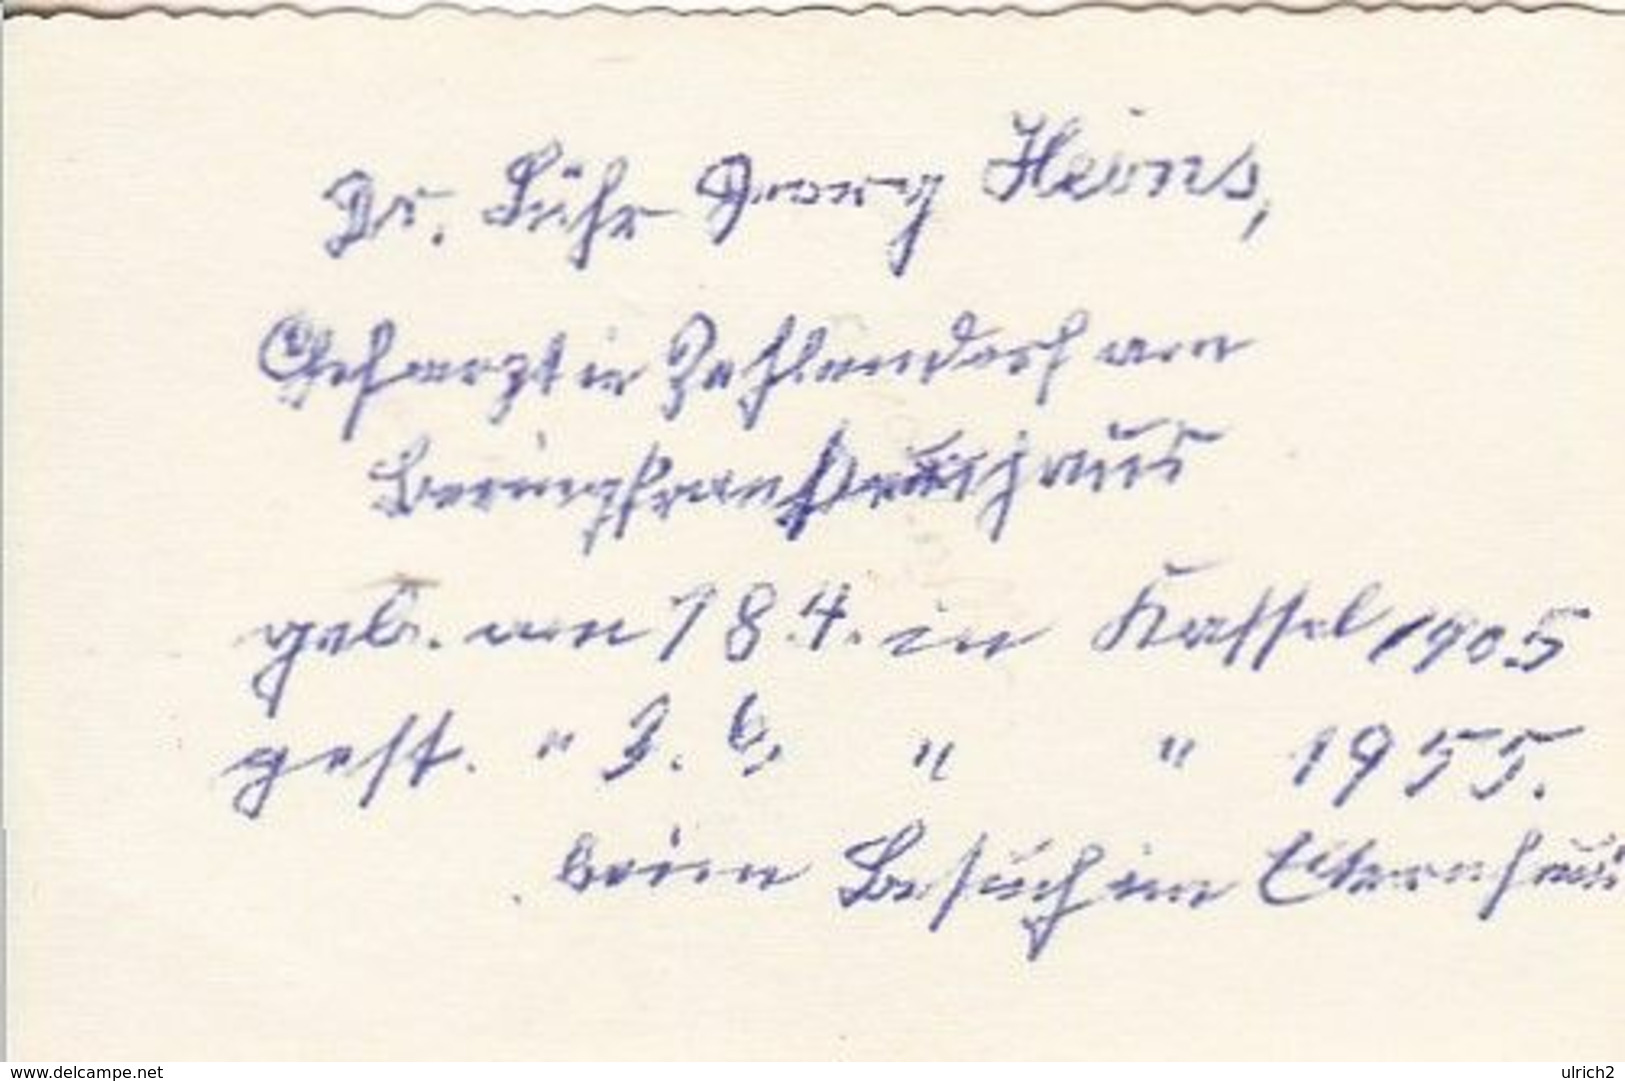 Dr. Lühr Georg Heins,
Chefarzt in Zehlendorf am
Beringkrankenhaus
geb. am 18.4. in Kassel 1905
gest. " 3. 6. " " 1955.
beim Besuch im Elternhaus
www.delcampe.net
ulrich2